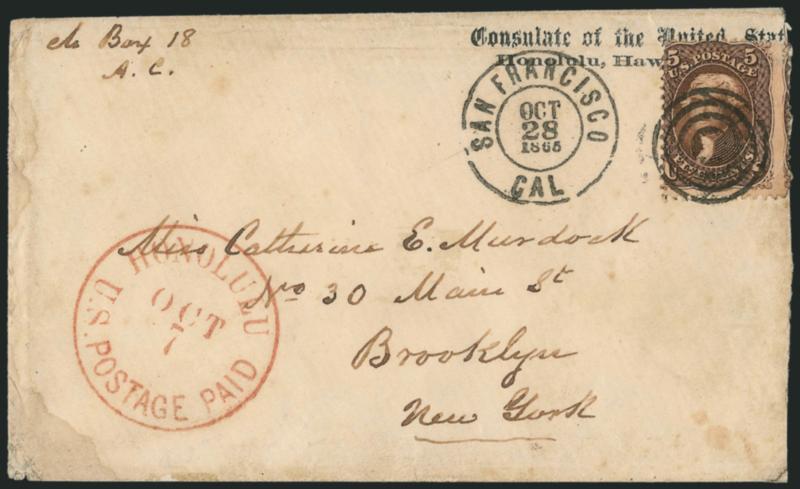 Box 18
A. C.
Consulate of the United Stat
Honolulu, Haw
5 5
U.S. POSTAGE
SAN FRANCISCO
OCT
28
1865
CAL
Miss Catherine E. Murdock
No 30 Main St
Brooklyn
New York
HONOLULU
OCT
7
U.S. POSTAGE PAID